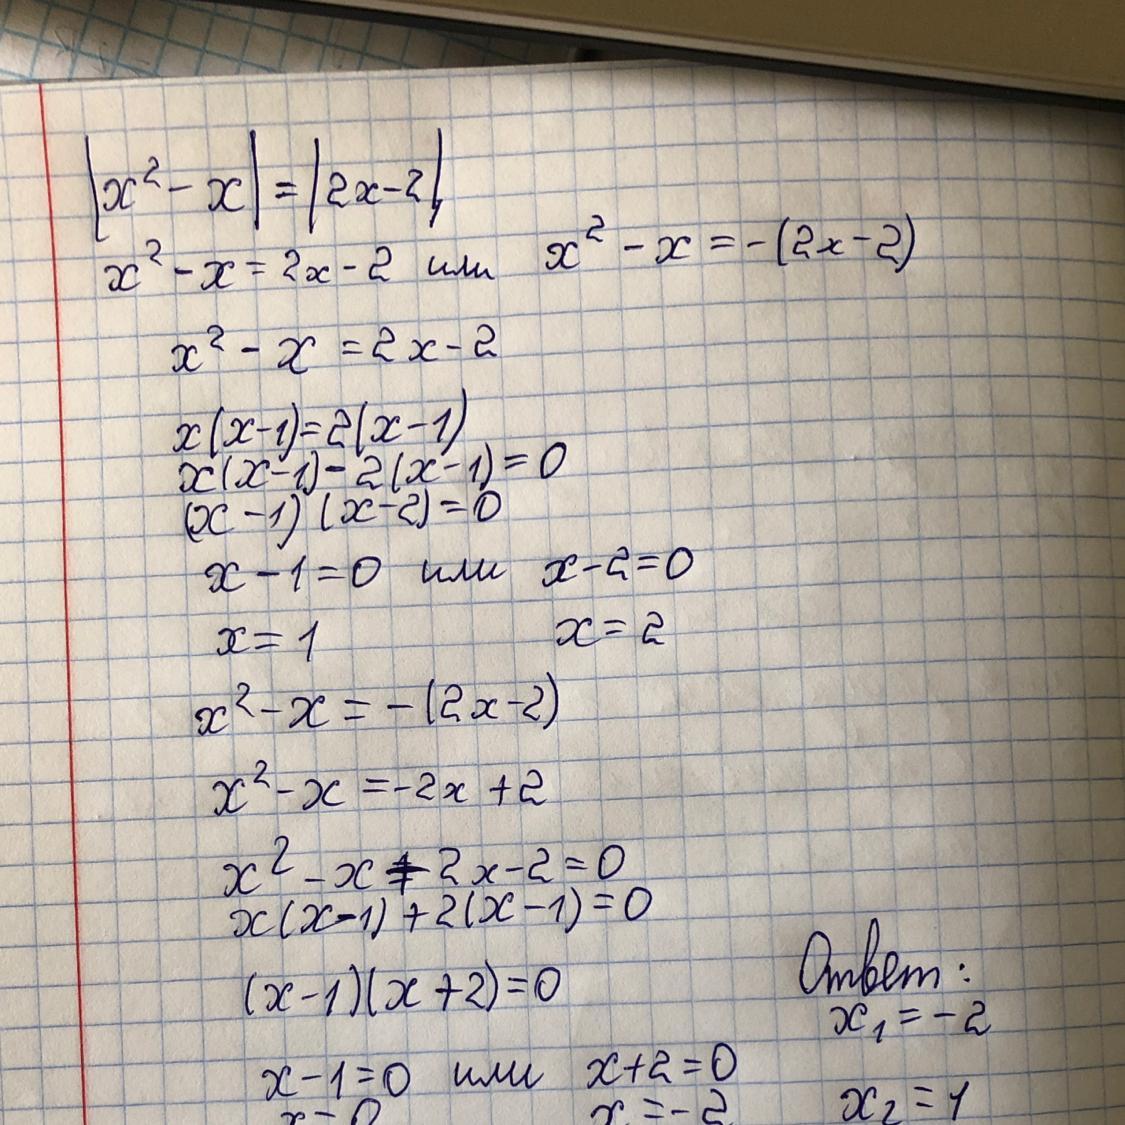 |x² - x| = |2x-2|
x² - x = 2x - 2 или x² - x = -(2x-2)
x² - x = 2x - 2
x(x-1) = 2(x-1)
x(x-1) - 2(x-1) = 0
(x-1)(x-2) = 0
x - 1 = 0 или x-2=0
x = 1 x = 2
x² - x = -(2x-2)
x² - x = -2x + 2
x² - x + 2x - 2 = 0
x(x-1) + 2(x-1) = 0
(x-1)(x+2) = 0
x-1=0 или x+2=0
x = -2
Ответ:
x₁ = -2
x₂ = 1